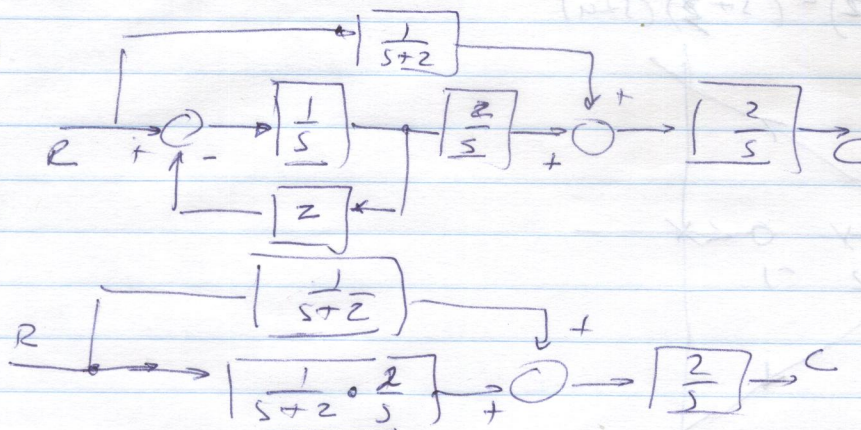 1/(s+2)
+
R + - 1/s 2/s + 2/s C
2
1/(s+2)
R +
1/(s+2) · 2/s + 2/s C